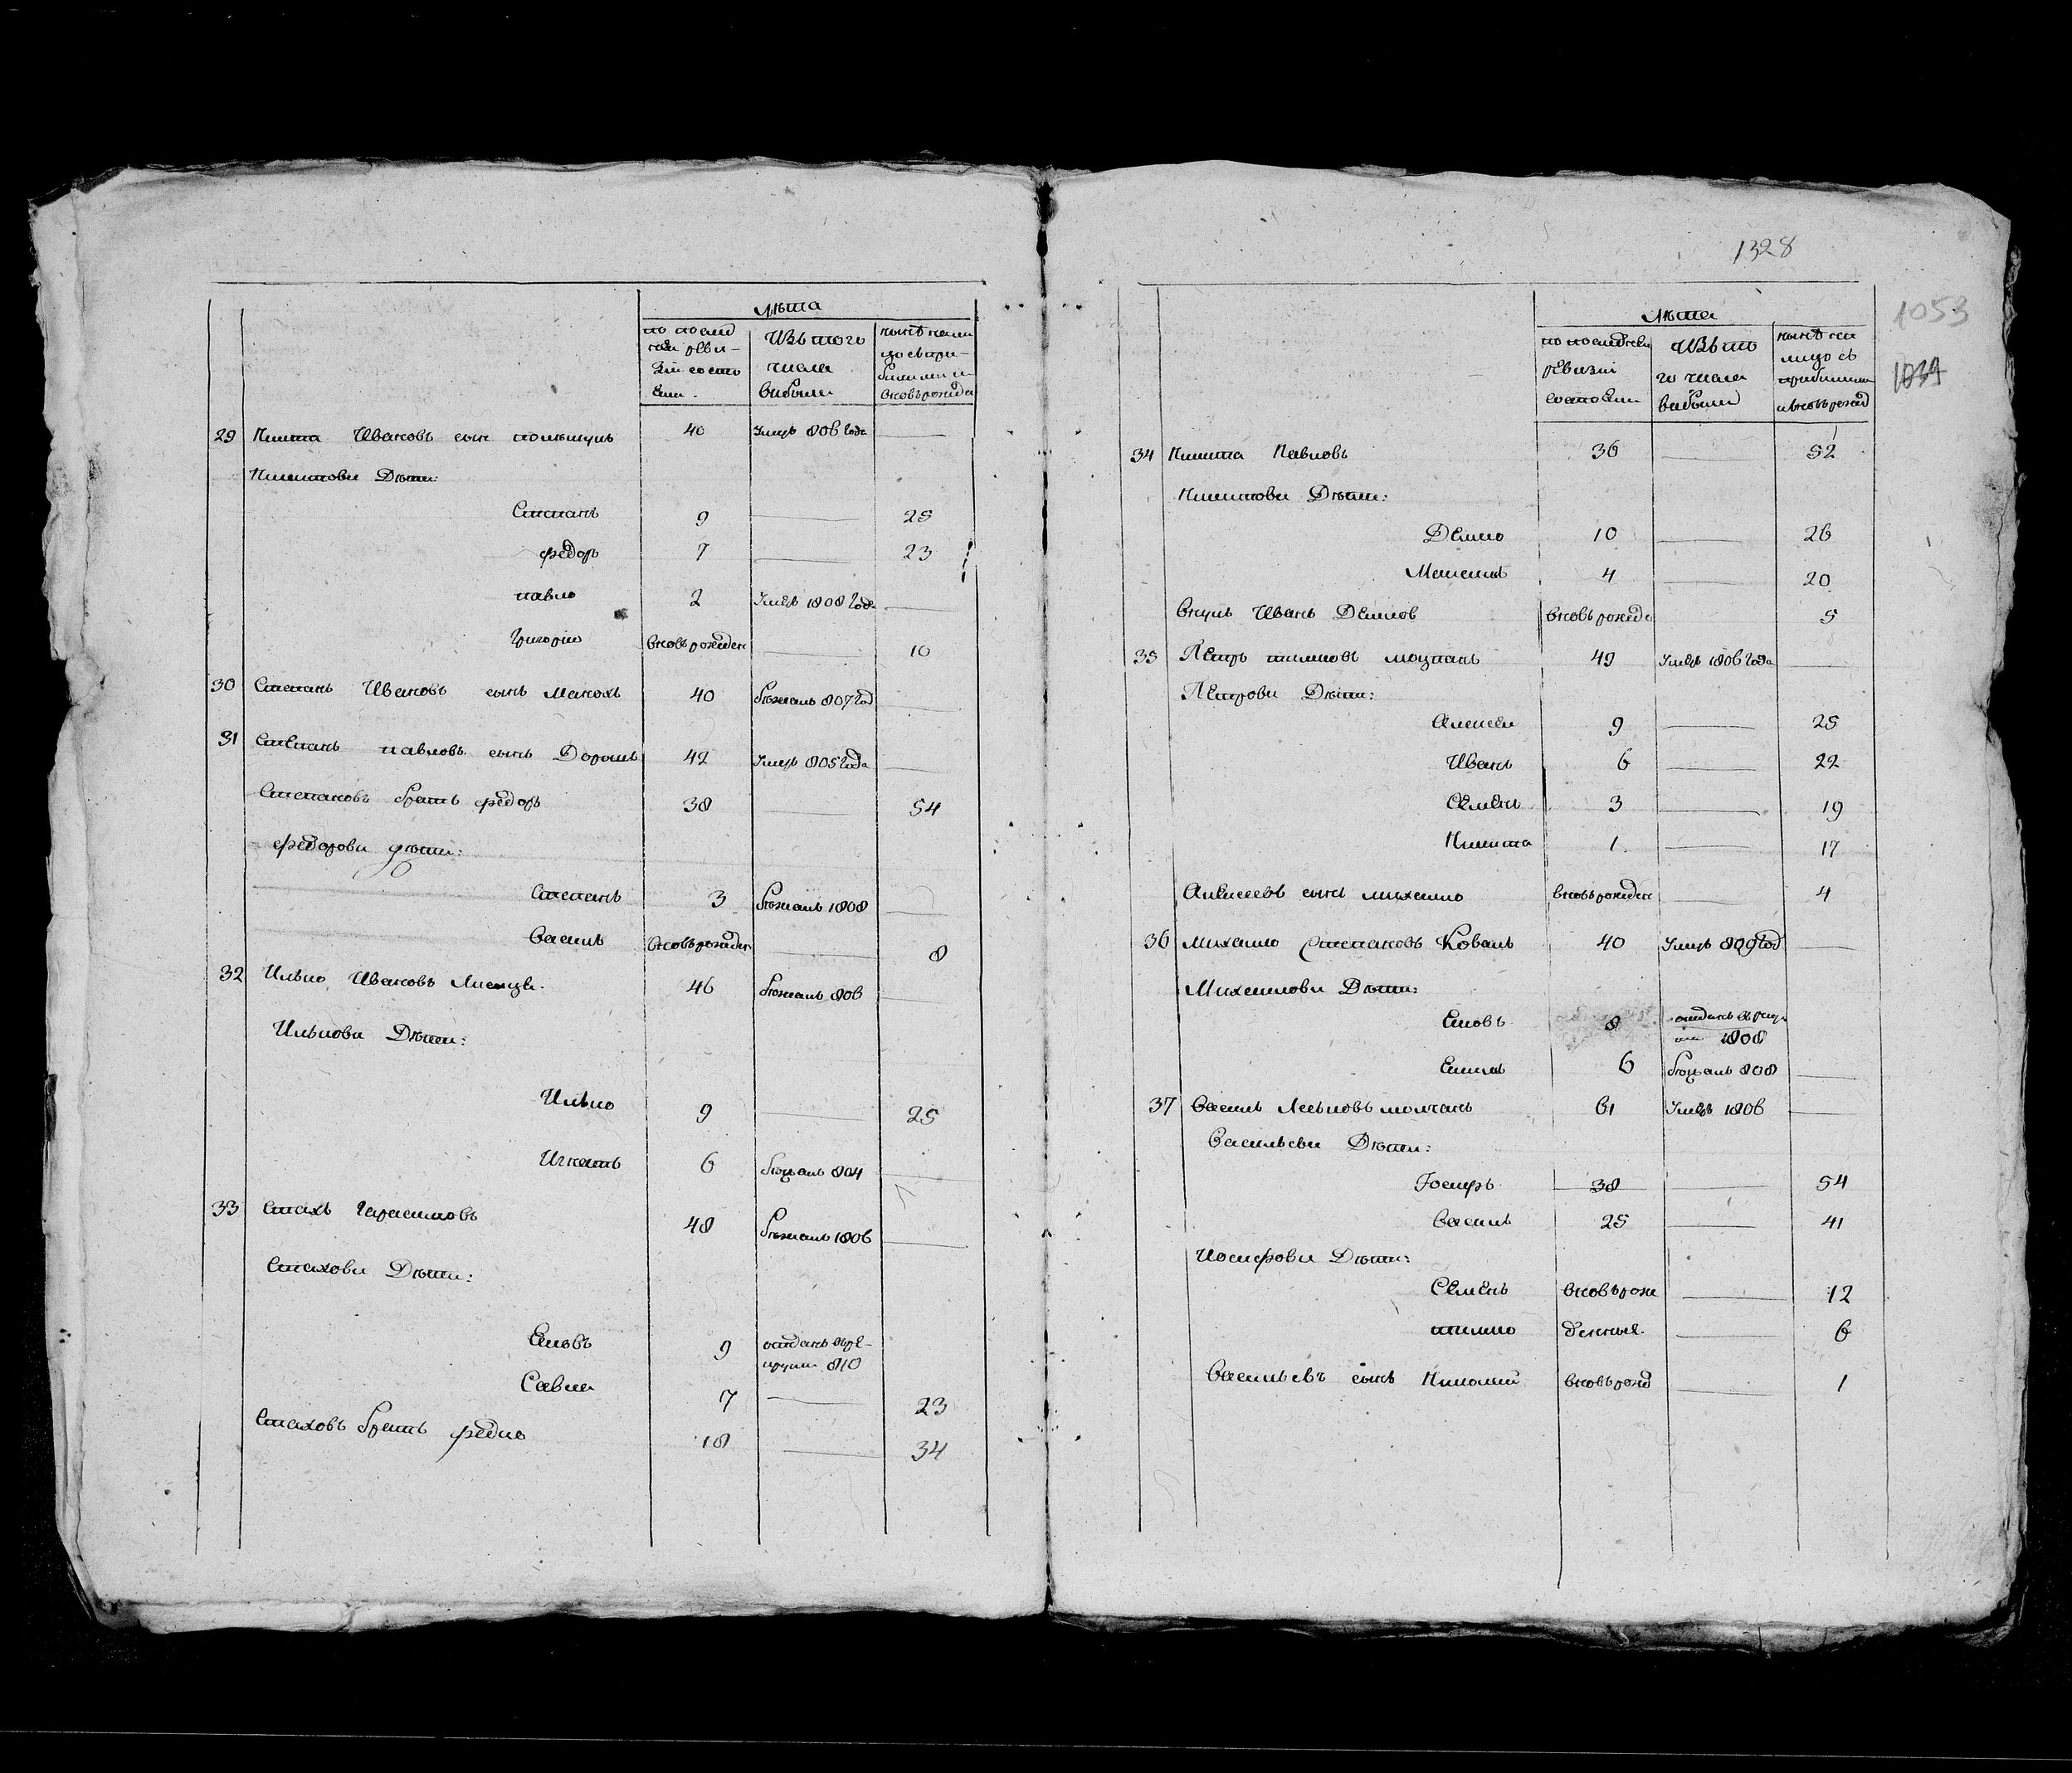 лѣта
по послед
ней реви-
зіи состо
яли.
Изъ того
числа
выбыли
нынѣ на ли
цо съ при-
былыми и
вновь рожден
29 Никита Ивановъ сын 40 Умеръ 806 года
Никитовы Дѣти:
Степанъ 9 25
федоръ 7 23
павло 2 Умеръ 1808 года
Григорій вновь рожден 10
30 Степанъ Ивановъ сынъ 40 бежалъ 807 год
31 Степанъ павловъ сынъ Дорошъ 42 Умеръ 805 года
Степановъ братъ федоръ 38 54
федоровы дѣти:
Степанъ 3 бежалъ 1808
Василь вновь рожден 8
32 Илько Ивановъ 46 бежалъ 806
Ильковы Дѣти:
Илько 9 25
Игнатъ 6 бежалъ 804
33 Стахъ Герасимовъ 48 бежалъ 1806
Стаховы Дѣти:
Яковъ 9 отданъ въ ре-
круты 810
Савка 7 23
Стаховъ братъ федко 18 34
1328
1053
лѣта
по последней
ревизіи
состояли
Изъ то
го числа
выбыли
нынѣ на
лицо съ
прибылыми
и вновь рожд
34 Никита Павловъ 36 52
Никитовы Дѣти:
Демко 10 26
Матвій 4 20
Внукъ Иванъ Демков вновь рожде 5
35 Петръ тимковъ 49 Умеръ 1806 года
Петровы Дѣти:
Алексей 9 25
Иванъ 6 22
Семенъ 3 19
Никита 1 17
Алексеевъ сынъ михайло вновь рожден 4
36 михайло Степановъ Коваль 40 Умеръ 809 год
Михайловы Дѣти:
Яковъ 8 отданъ в рекру
ты 1808
Якимъ 6 бежалъ 808
37 Василь молчанъ 61 Умеръ 1806
Васильевы Дѣти:
Іосифъ 38 54
Василь 25 41
Иосифовы Дѣти:
Семенъ вновь рож 12
тимко 6
Васильевъ сынъ Николай вновь рожд 1